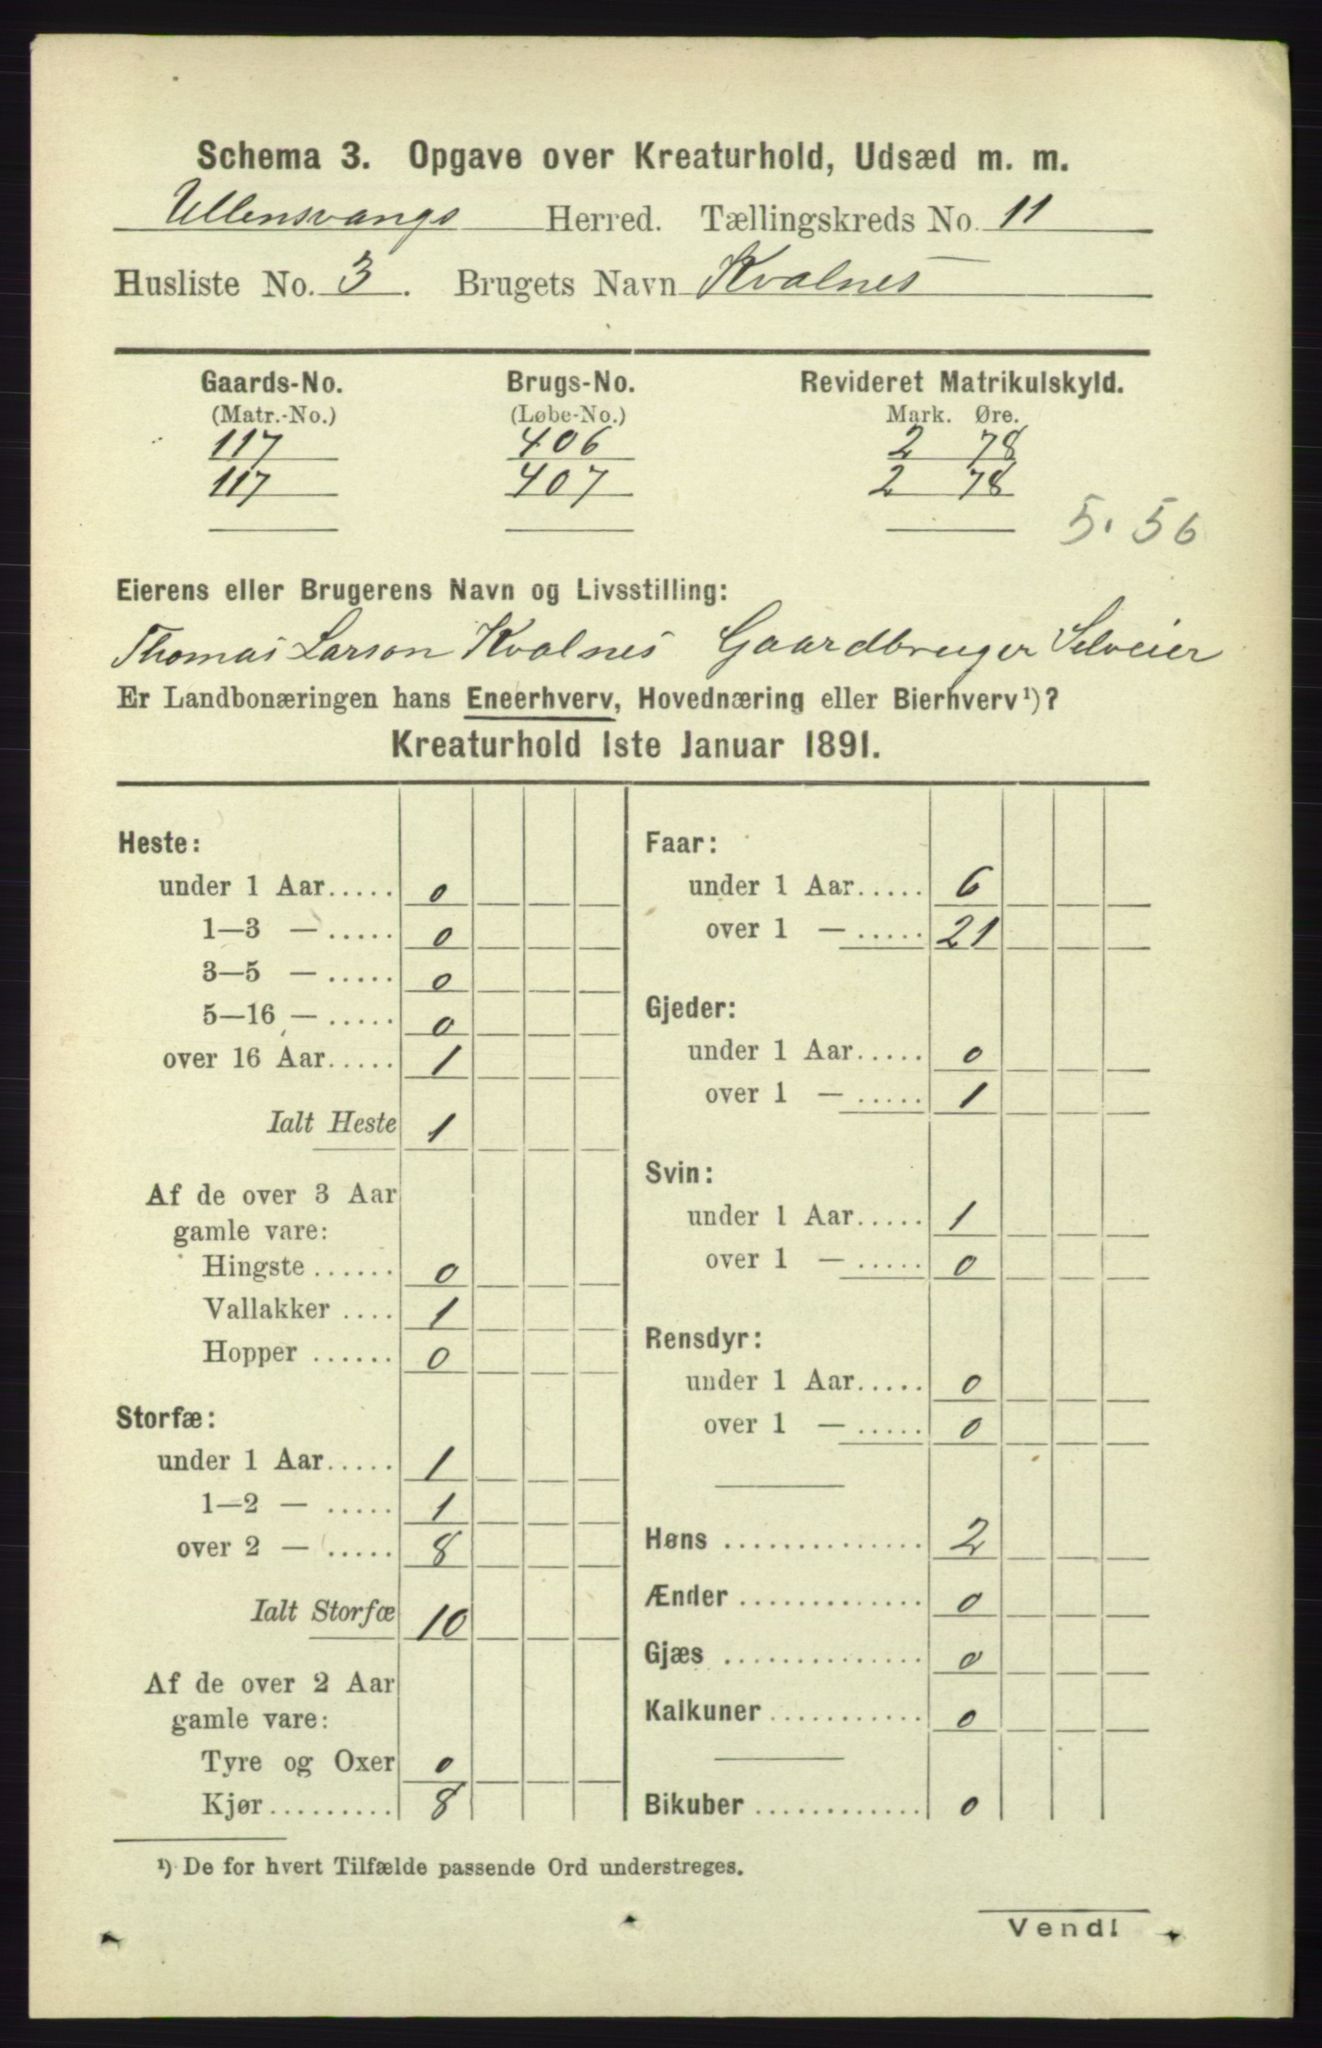 Schema 3. Opgave over Kreaturhold, Udsæd m. m.
Ullensvangs Herred. Tællingskreds No. 11
Husliste No. 3. Brugets Navn Kvalnes
Gaards-No. Brugs-No. Revideret Matrikulskyld.
(Matr.-No.) (Løbe-No.) Mark. Øre.
117 406 2 78
117 407 2 78
5.56
Eierens eller Brugerens Navn og Livsstilling:
Thomas Larson Kvalnes Gaardbruger Selveier
Er Landbonæringen hans Eneerhverv, Hovednæring eller Bierhverv¹)?
Kreaturhold 1ste Januar 1891.
Heste:
under 1 Aar..... 0
1—3 — ..... 0
3—5 — ..... 0
5—16 — ..... 0
over 16 Aar..... 1
Ialt Heste 1
Af de over 3 Aar
gamle vare:
Hingste ...... 0
Vallakker .... 1
Hopper ...... 0
Storfæ:
under 1 Aar..... 1
1—2 — ..... 1
over 2 — ..... 8
Ialt Storfæ 10
Af de over 2 Aar
gamle vare:
Tyre og Oxer 0
Kjør.......... 8
Faar:
under 1 Aar..... 6
over 1 — ..... 21
Gjeder:
under 1 Aar..... 0
over 1 — ..... 1
Svin:
under 1 Aar..... 1
over 1 — ..... 0
Rensdyr:
under 1 Aar..... 0
over 1 — ..... 0
Høns .............. 2
Ænder ............. 0
Gjæs .............. 0
Kalkuner ........... 0
Bikuber ............ 0
¹) De for hvert Tilfælde passende Ord understreges.
Vend!